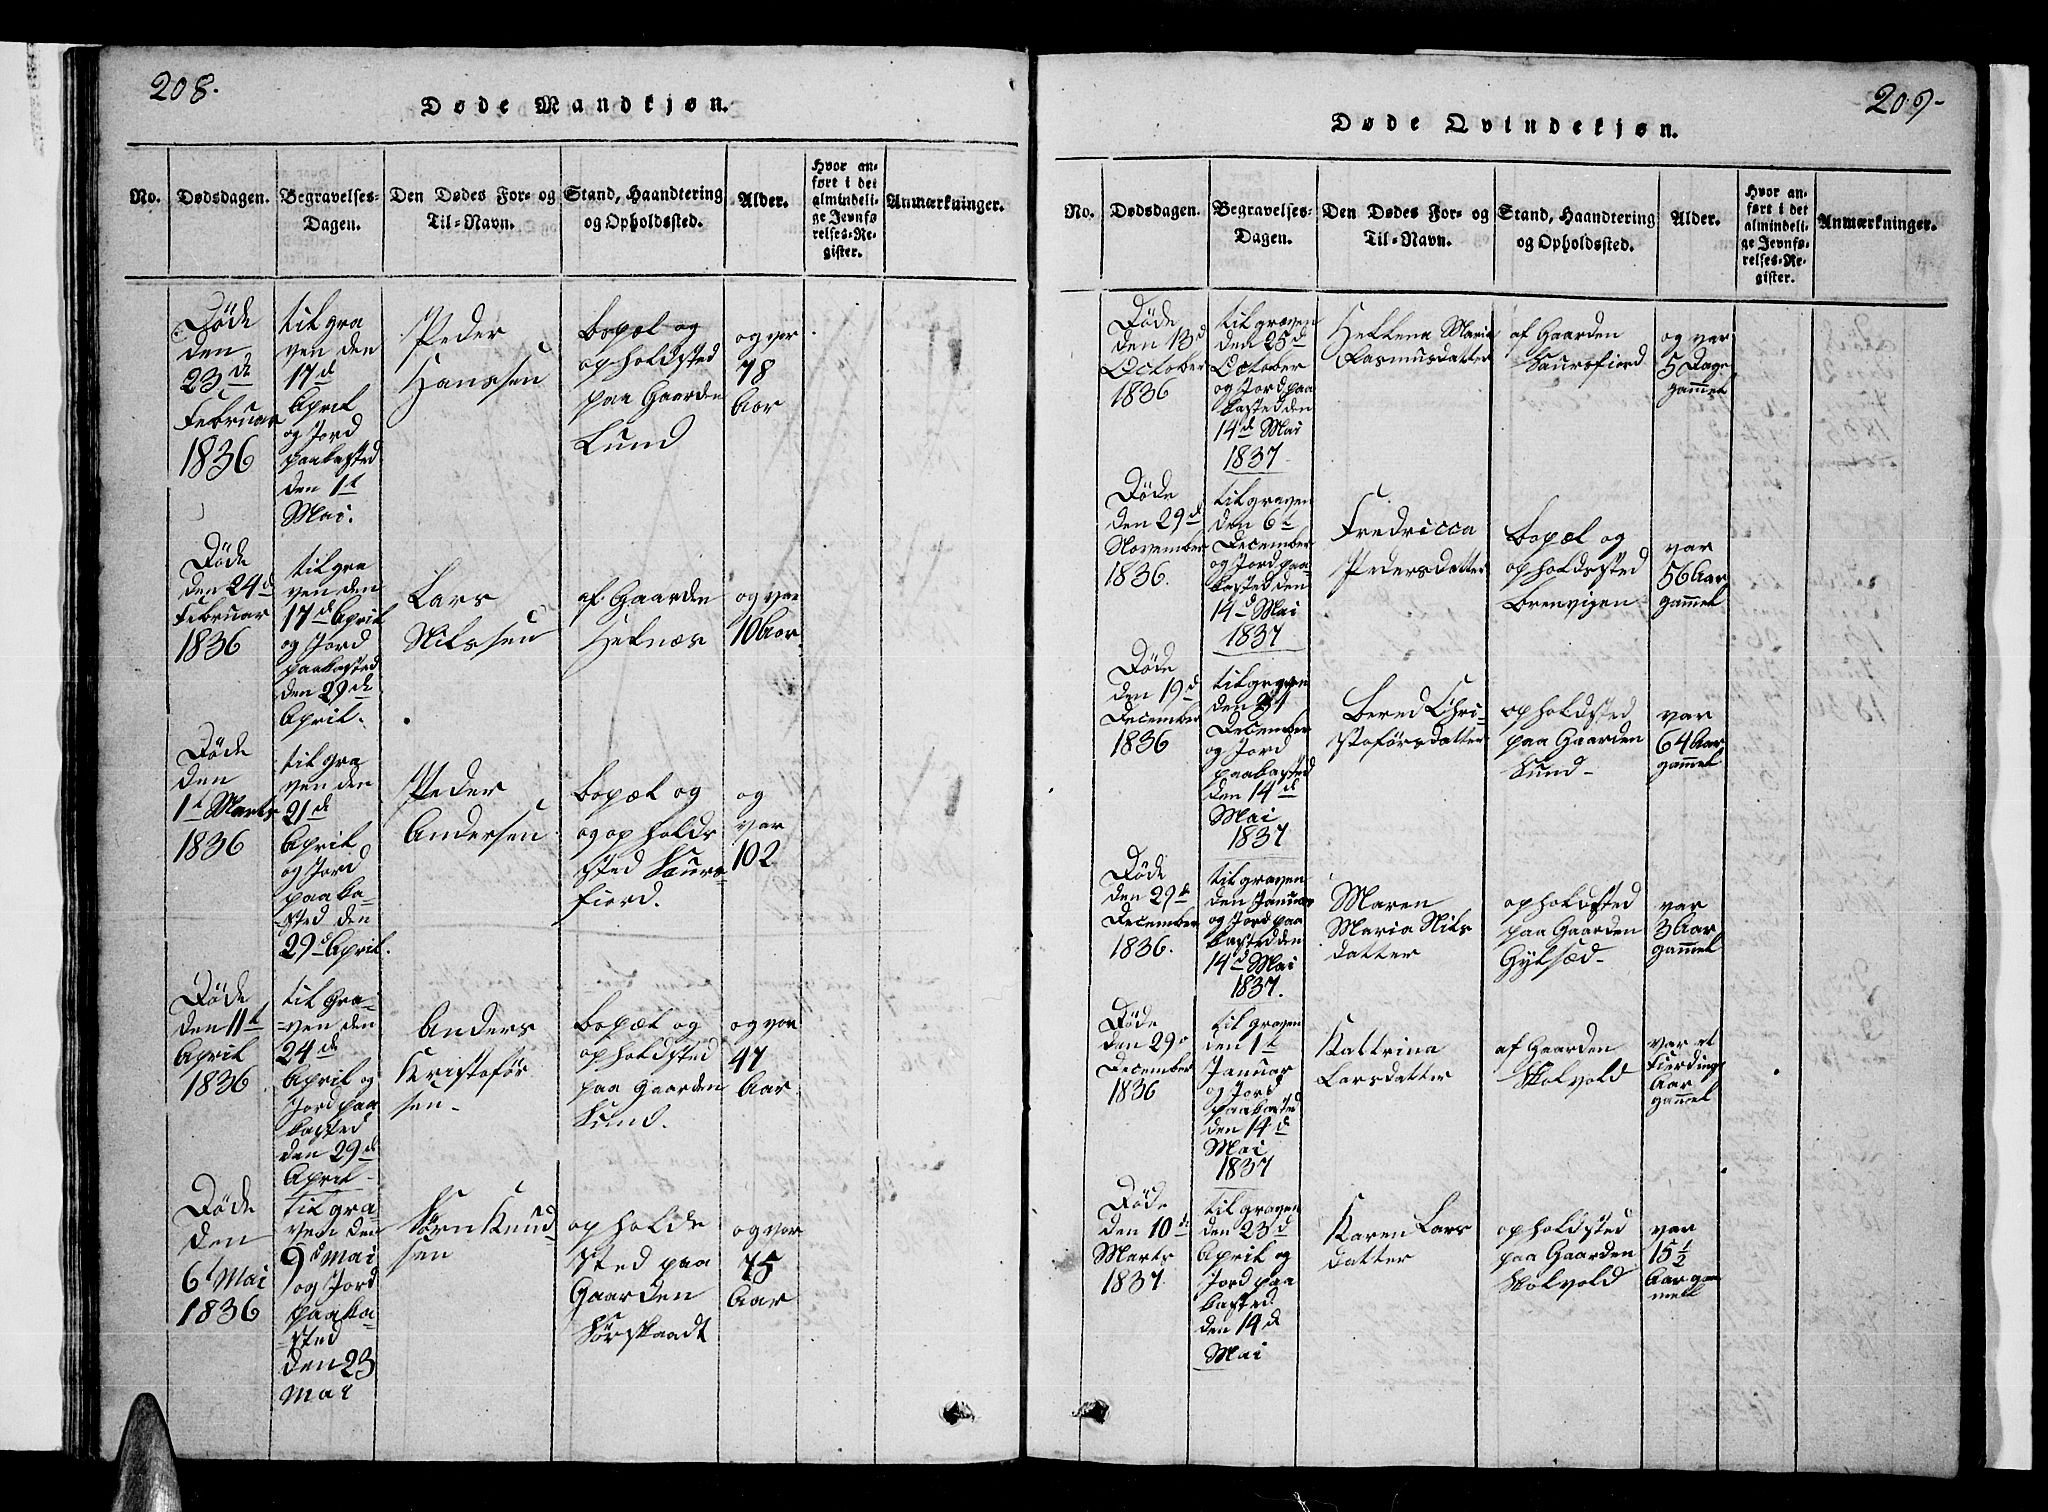 208.
Døde Mandkjøn.
No.
Dødsdagen.
Begravelses-
Dagen.
Den Dødes For- og
Til-Navn.
Stand, Haandtering
og Opholdssted.
Alder.
Hvor an-
ført i det
almindeli-
ge Jevnfø
relses-Re-
gister.
Anmærkninger.
Døde
den
23de
Februar
1836
til gra
ven den
17d
April
og Jord
paakasted
den 1t
Mai.
Peder
Hanssen
bopæl og
opholdsted
paa Gaarden
Lund
og var
78
Aar
Døde
den 24d
Februar
1836
til gra
ven den
17d April
og Jord
paakasted
den 29de
April.
Lars
Nilssen
af Gaarden
Helnæs
og var
10 Aar.
Døde
den
1t Marts
1836
til gra
ven den
21de
April
og Jord
paa ka-
sted den
29d April.
Peder
Andersen
bopæl og
og opholds
sted Saurs-
fiord.
og
var
102
Døde
den 11t
April
1836
til Gra-
ven den
24de
April og
Jord paa
kasted
den 29de
April
Anders
Kristofør
sen
bopæl og
opholdsted
paa Gaarden
Sund.
og var
47
Aar
Døde
den
6t Mai
1836
til gra-
ven den
9d Mai
og Jord
paaka-
sted
den 23
Mai
Sørn Knud-
sen
opholds
sted paa
Gaarden
Sørskaadt
og var
75
Aar
209-
Døde Qvindekjøn.
No.
Dødsdagen.
Begravelses-
Dagen.
Den Dødes For- og
Til-Navn.
Stand, Haandtering
og Opholdssted.
Alder.
Hvor an-
ført i det
almindeli-
ge Jevnfø-
relses-Re-
gister.
Anmærkninger.
Døde
den 13d
October
1836
til graven
den 23d
October
og Jord paa
kasted den
14d Mai
1837
Hellena Maria
Rasmusdatter
af Gaarden
Saursfiord
og var
5 Dage
gammel
Døde
den 29d
November
1836.
til graven
den 6t
December
og Jord paa-
kasted den
14d Mai
1837
Fredricca
Pedersdatter
bopæl og
opholdssted
Brenvigen
var
56 Aar
gammel
Døde
den 19d
December
1836
til graven
den
December
og Jord
paakasted
den 14d
Mai
1837
Bered Chri-
stoførsdatter
opholdsted
paa Gaarden
Sund-
var
64 Aar
gammel
Døde
den 29de
December
1836.
til graven
den Januar
og Jord paa
kasted den
14d Mai
1837.
Maren
Maria Nils
datter
opholdsted
paa Gaarden
Gylsæd-
var
3 Aar
gammel
Døde
den 29d
December
1836
til graven
den 1t
Januar
og Jord
paakasted
den 14d
Mai
1837
Kattrina
Larsdatter
af Gaarden
Holvold
var et
Fierding
Aar
gammel
Døde
den 10de
Marts
1837.
til graven
den 23d
April og
Jord paa
kasted
den 14d
Mai
Karen Lars
datter
opholdsted
paa Gaarden
Holvold
var
15 1/2
Aar gam
mell